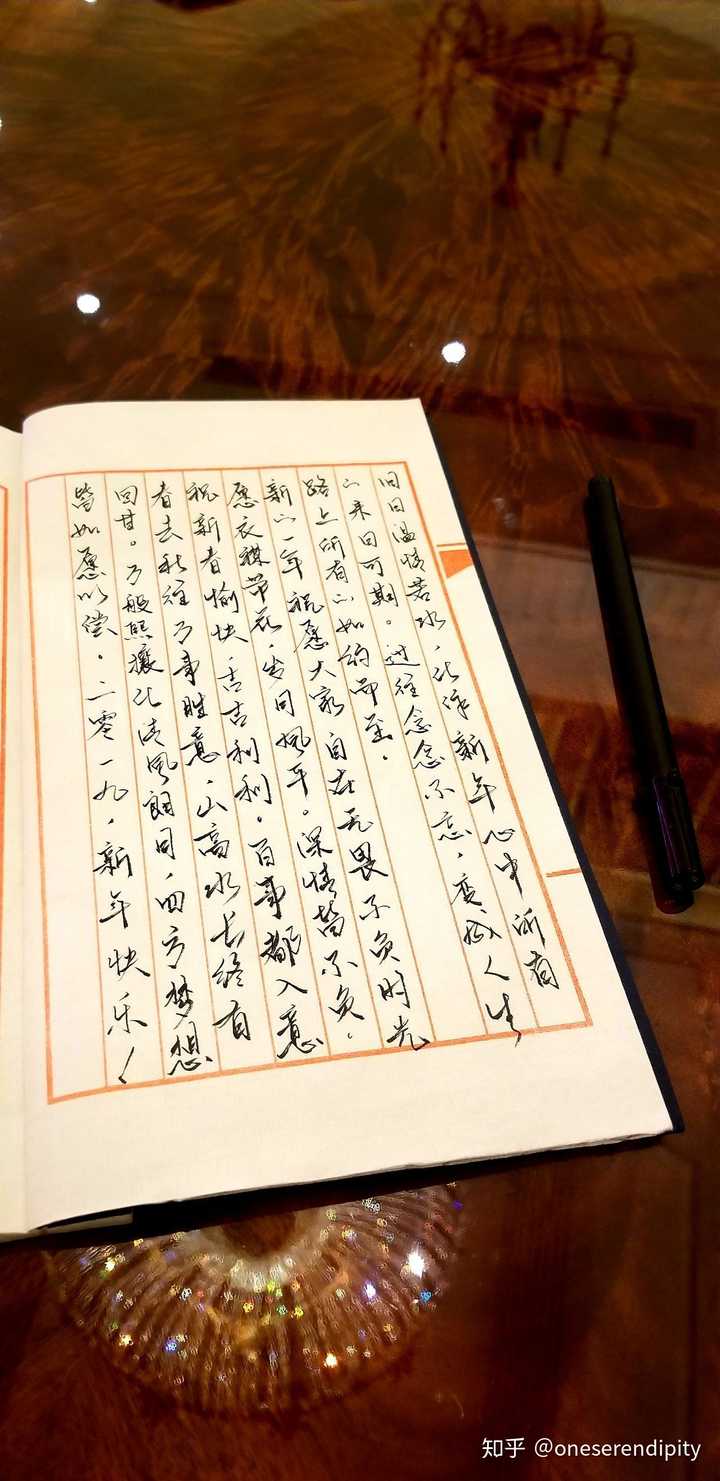 旧日温情若水，化作新年心中所有
的来日可期。过往念念不忘，变成人生
路上所有的如约而至。
新的一年祝愿大家自在无畏不负时光
愿衣襟带花，岁月风平。深情皆不负。
祝新春愉快，吉吉利利。百事都入意
春去秋往万事胜意，山高水长终有
回甘。万般熙攘化清风朗月，四方梦想
皆如愿以偿。二零一九，新年快乐！
知乎 @oneserendipity